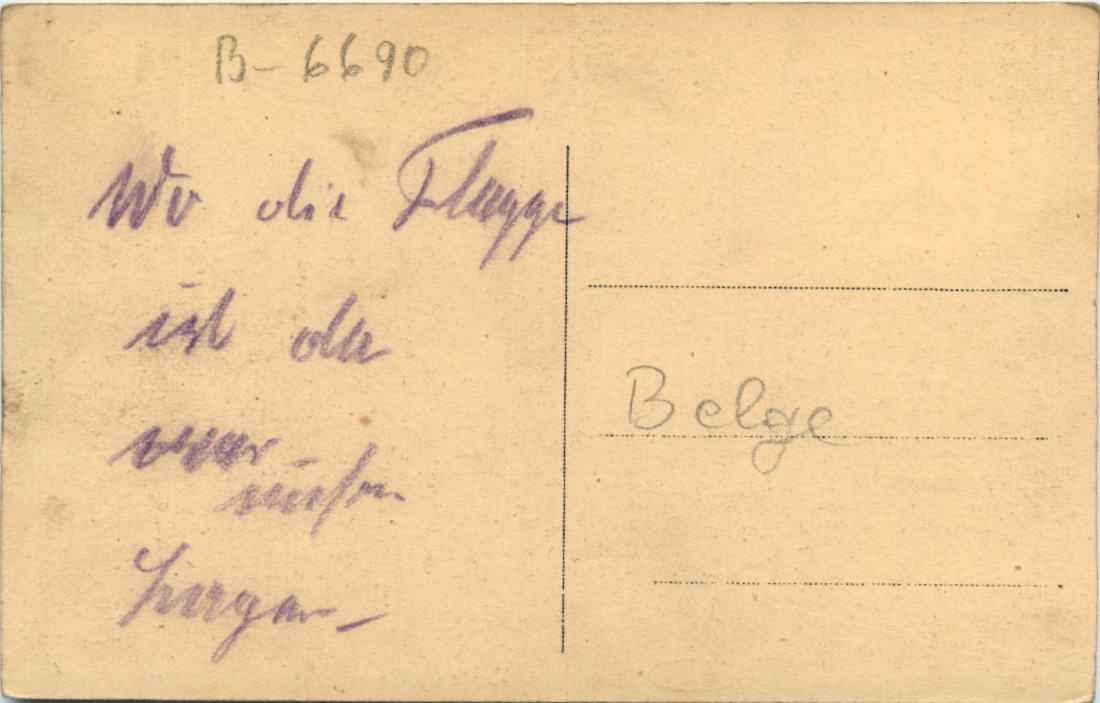 B-6690
Wo die Flagge
ist da
war
unser
Lager
Belge